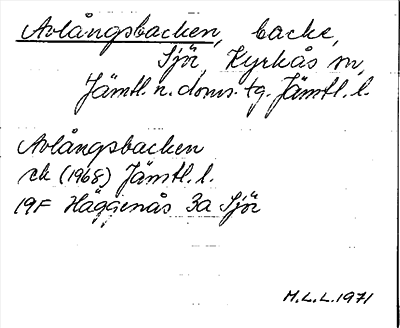 Avlångsbacken, backe,
Sjör Kyrkås sn,
Jämtl. n. doms. tg. Jämtl. l.
Avlångsbacken
rek (1968) Jämtl. l.
19F Häggenås 3a Sjör
M.L.L. 1971